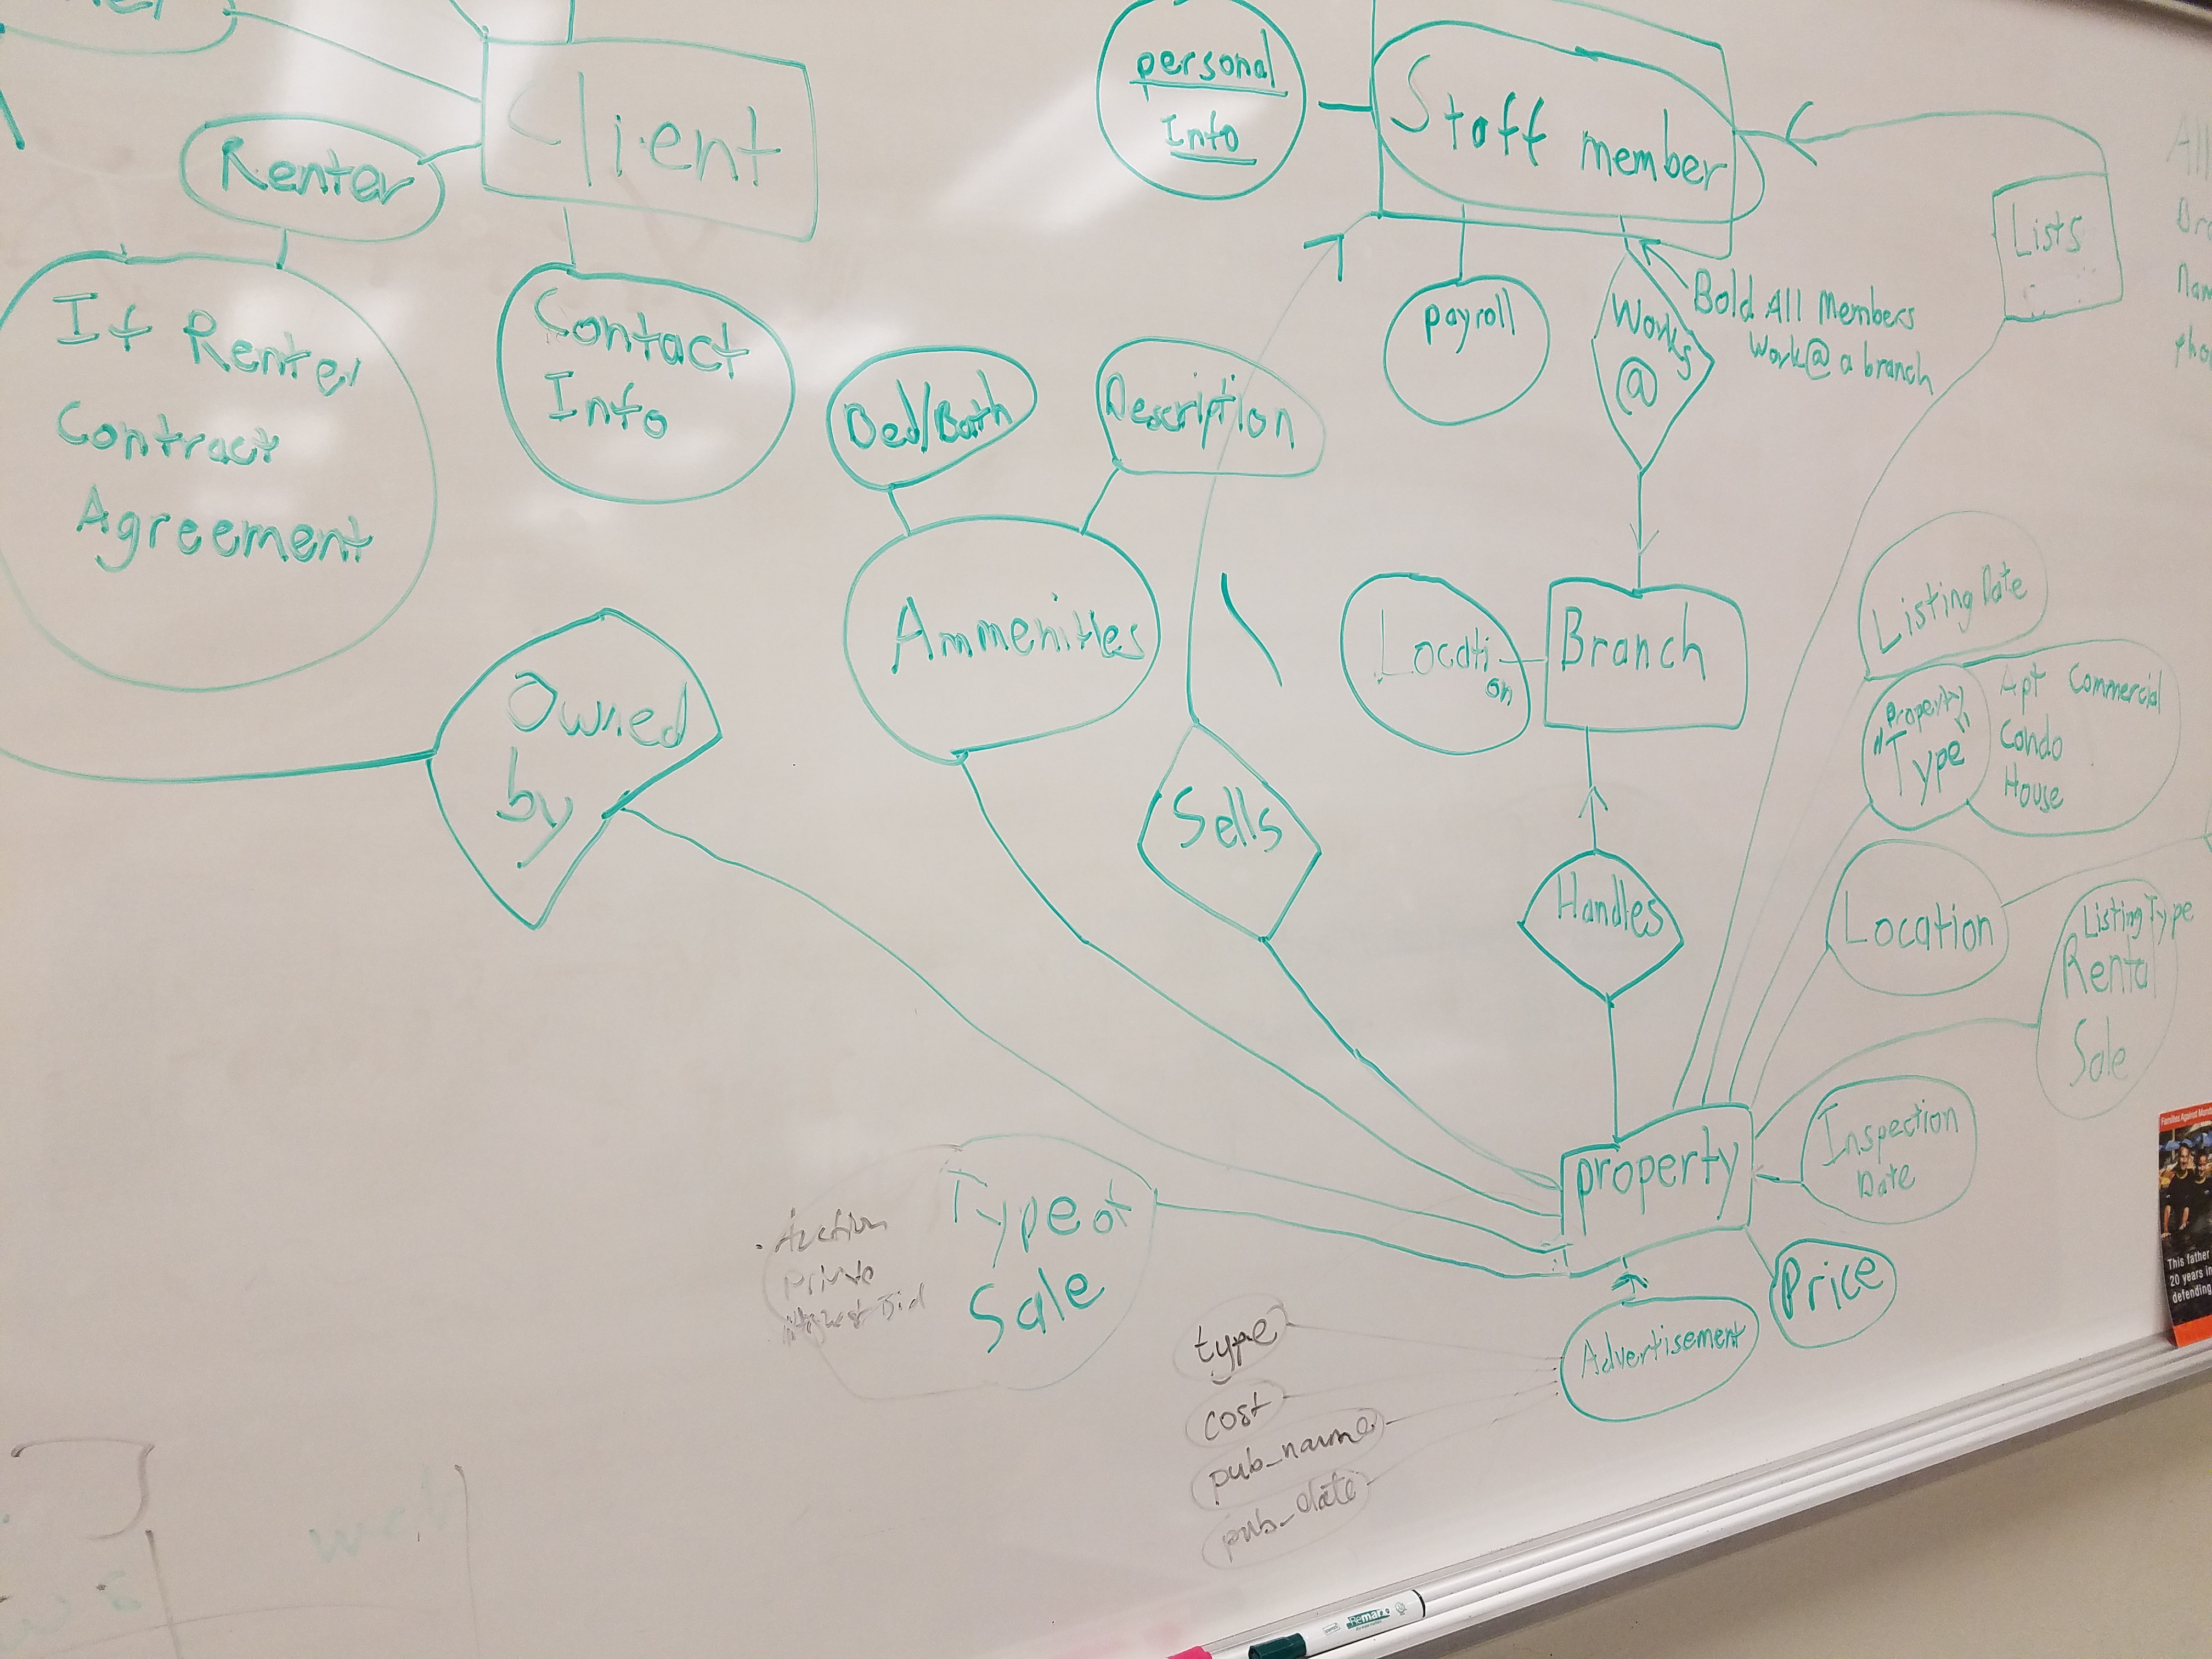 Client
Renter
If Renter
Contract
Agreement
Contact
Info
personal
Info
Staff member
payroll
Works
@
Bold All Members
Work@ a branch
Lists
Bed/Bath
Description
Ammenities
Owned
by
Sells
Locati
on
Branch
Handles
Listing Date
Property
"Type"
Apt Commercial
Condo
House
Location
Listing Type
Rental
Sale
Inspection
Date
property
Price
Advertisement
Type of
Sale
Auction
Private
Highest Bid
type
cost
pub_name
pub_date
This father
20 years in
defending